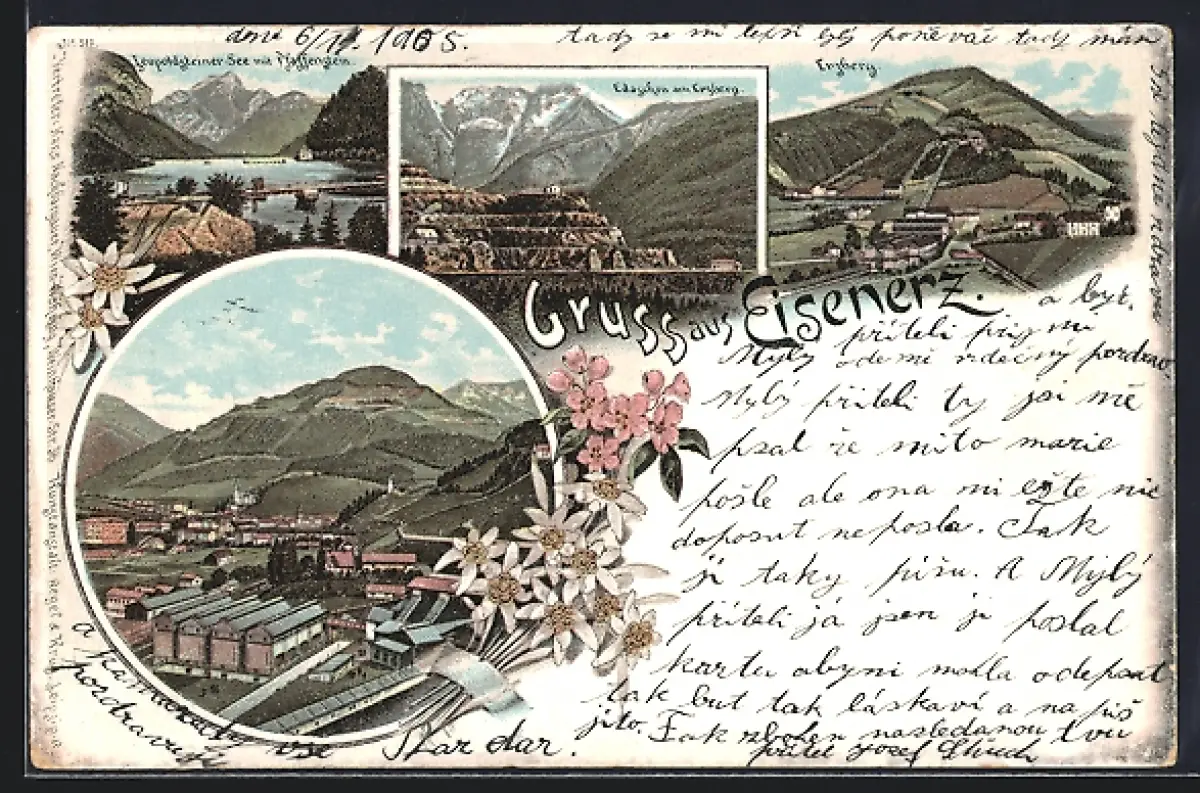 dne 6/11. 1905.
tady se mi lepší byl poněváč tady mám
Leopoldsteiner-See mit Pfaffenstein.
Etagen am Erzberg.
Erzberg
Gruss aus Eisenerz.
a byt.
příteli přijmi
Mylý odemi srdečný pozdrav.
Mylý příteli ty jsi mě
psal že mito marie
pošle ale ona mi ešte nic
doposut neposla. Tak
ji taky pišu. A Mylý
příteli já jsem ji poslal
kartu abymi mohla odepsat
tak but tak láskaví a napiš
jito. Tak
nasledanou tvu
přítel Josef
a
kamarady
pozdravuj
vše Star dar.